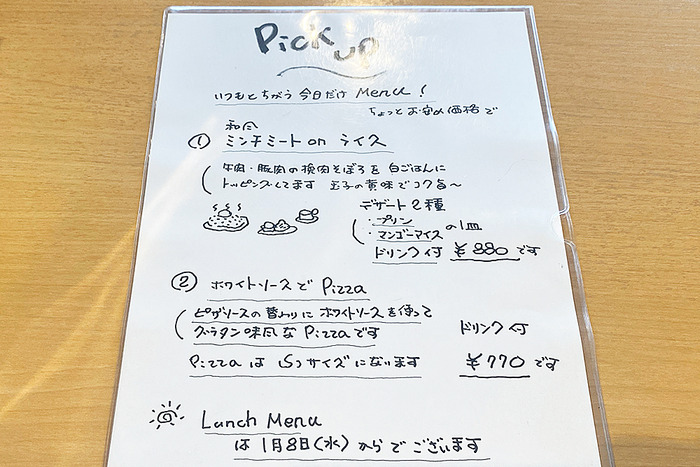 Pick up
いつもとちがう 今日だけ Menu!
ちょっとお安め価格で
和風
① ミンチミート on ライス
牛肉・豚肉の挽肉そぼろを 白ごはんに
トッピングしてます 玉子の黄味でコク旨〜
デザート2種
・プリン
・マンゴーアイス の1皿
ドリンク付 ¥880です
② ホワイトソースで Pizza
ピザソースの替わりに ホワイトソースを使って
グラタン味風な Pizzaです
ドリンク付
Pizzaは Sサイズになります
¥770です
Lunch Menu
は 1月8日(水)からでございます